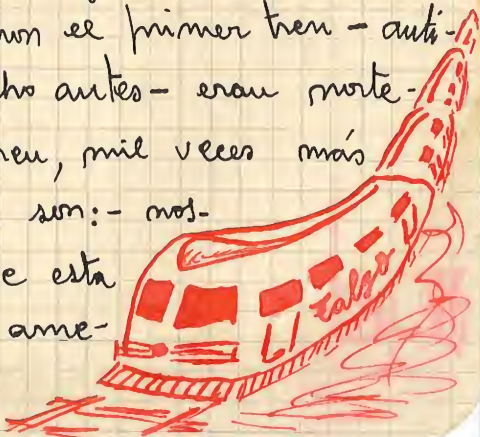 el primer tren - anti-
antes - eran norte-
mil veces más
son: - nos-
e esta
ame-
Talgo